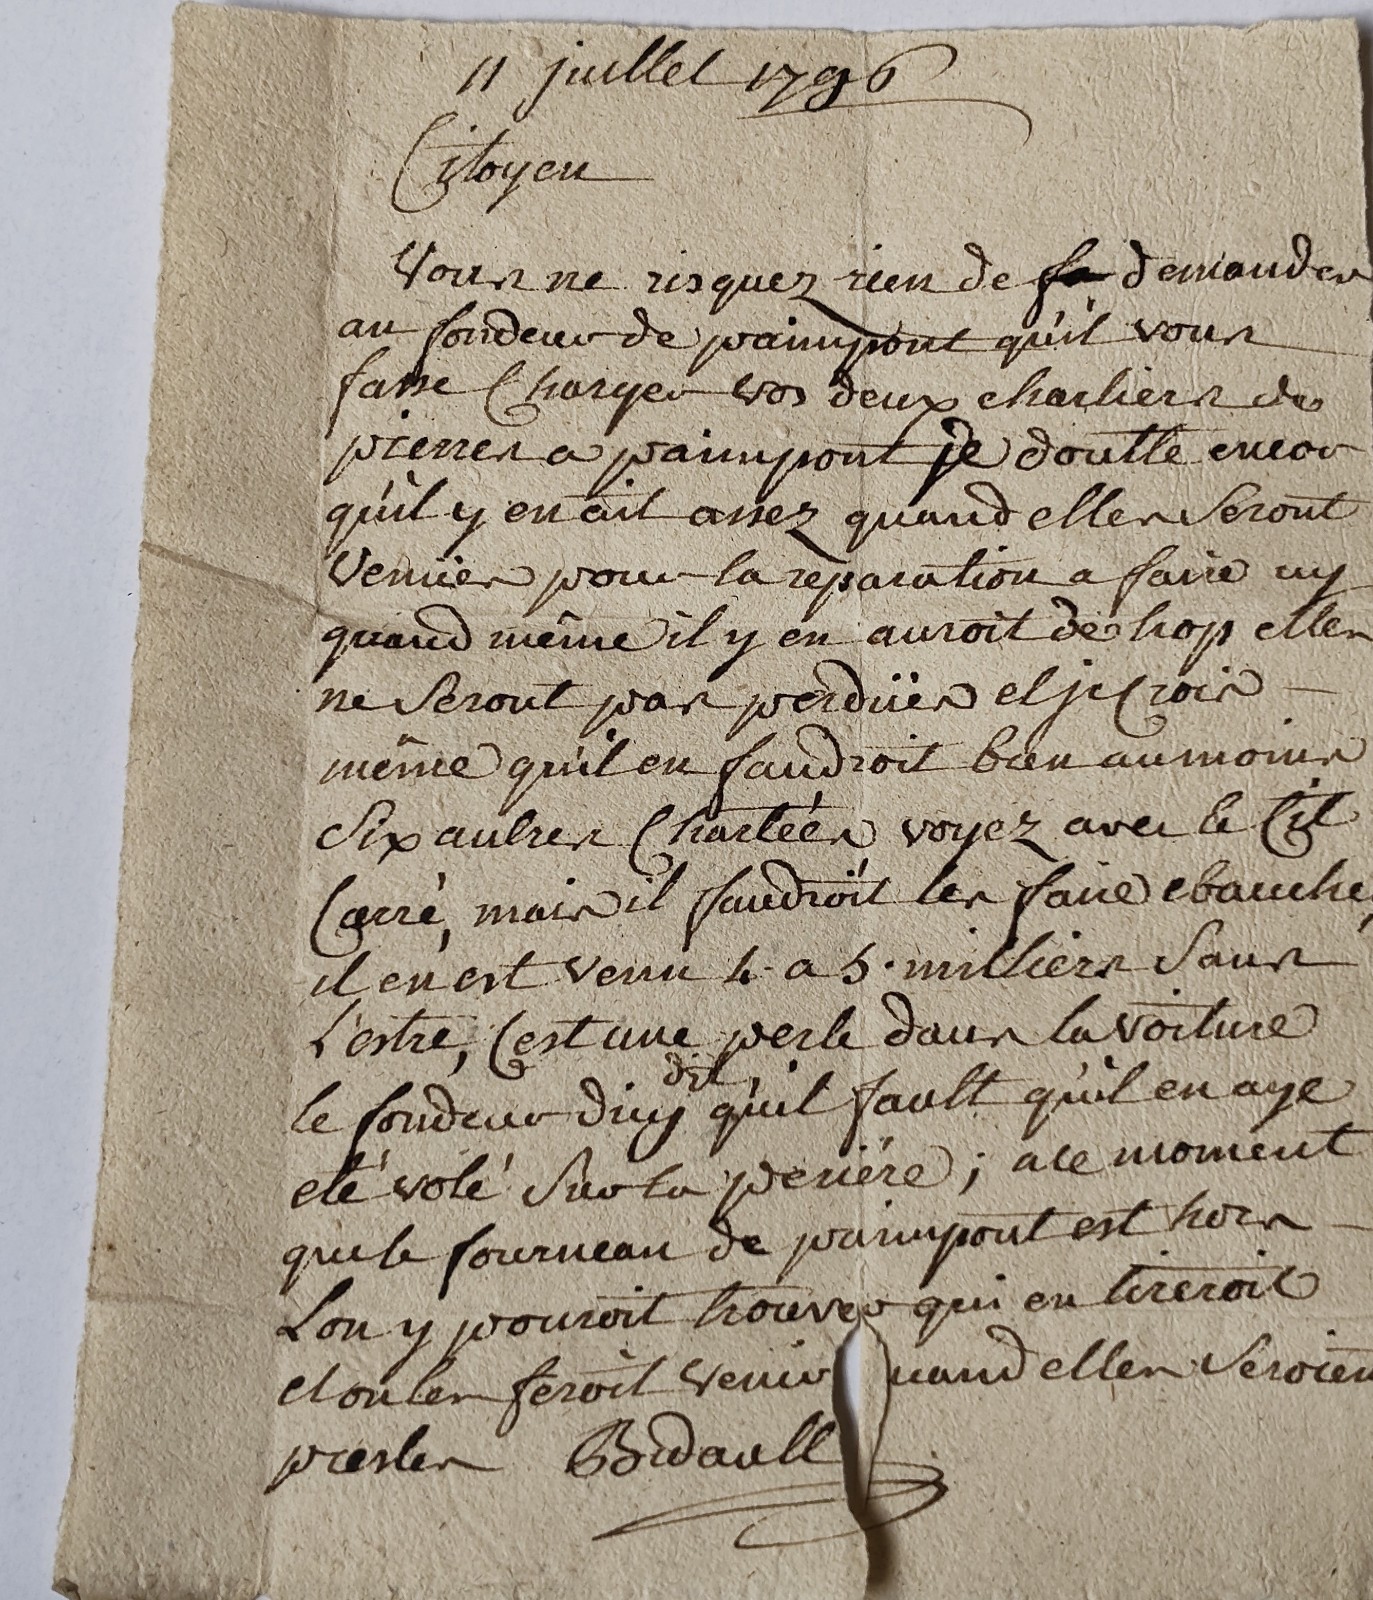 11 juillet 1796
Citoyen
Vous ne risquez rien de demander
au fondeur de painpont qu'il vous
fasse Charger vos deux charliers de
pierres a painpont je doutte encor
qu'il y en ait assez quand elles Seront
Venües pour la reparation a faire icy
quand même il y en auroit de trop elles
ne Seront pas perdües et je Crois
même qu'il en faudroit bien au moins
Six autres Chartées voyez avec le Cit
Carré, mais il faudroit les faire ebaucher
il en est venu 4 a 5 milliers Sans
L'estre, C'est une perte dans la voiture
le fondeur d'icy dit qu'il fault qu'il en aye
eté volé Sur la periére; a ce moment
que le fourneau de painpont est hors
Lon y pouroit trouver qui en tireroit
et on les feroit venir quand elles Seroient
prestes Bidault